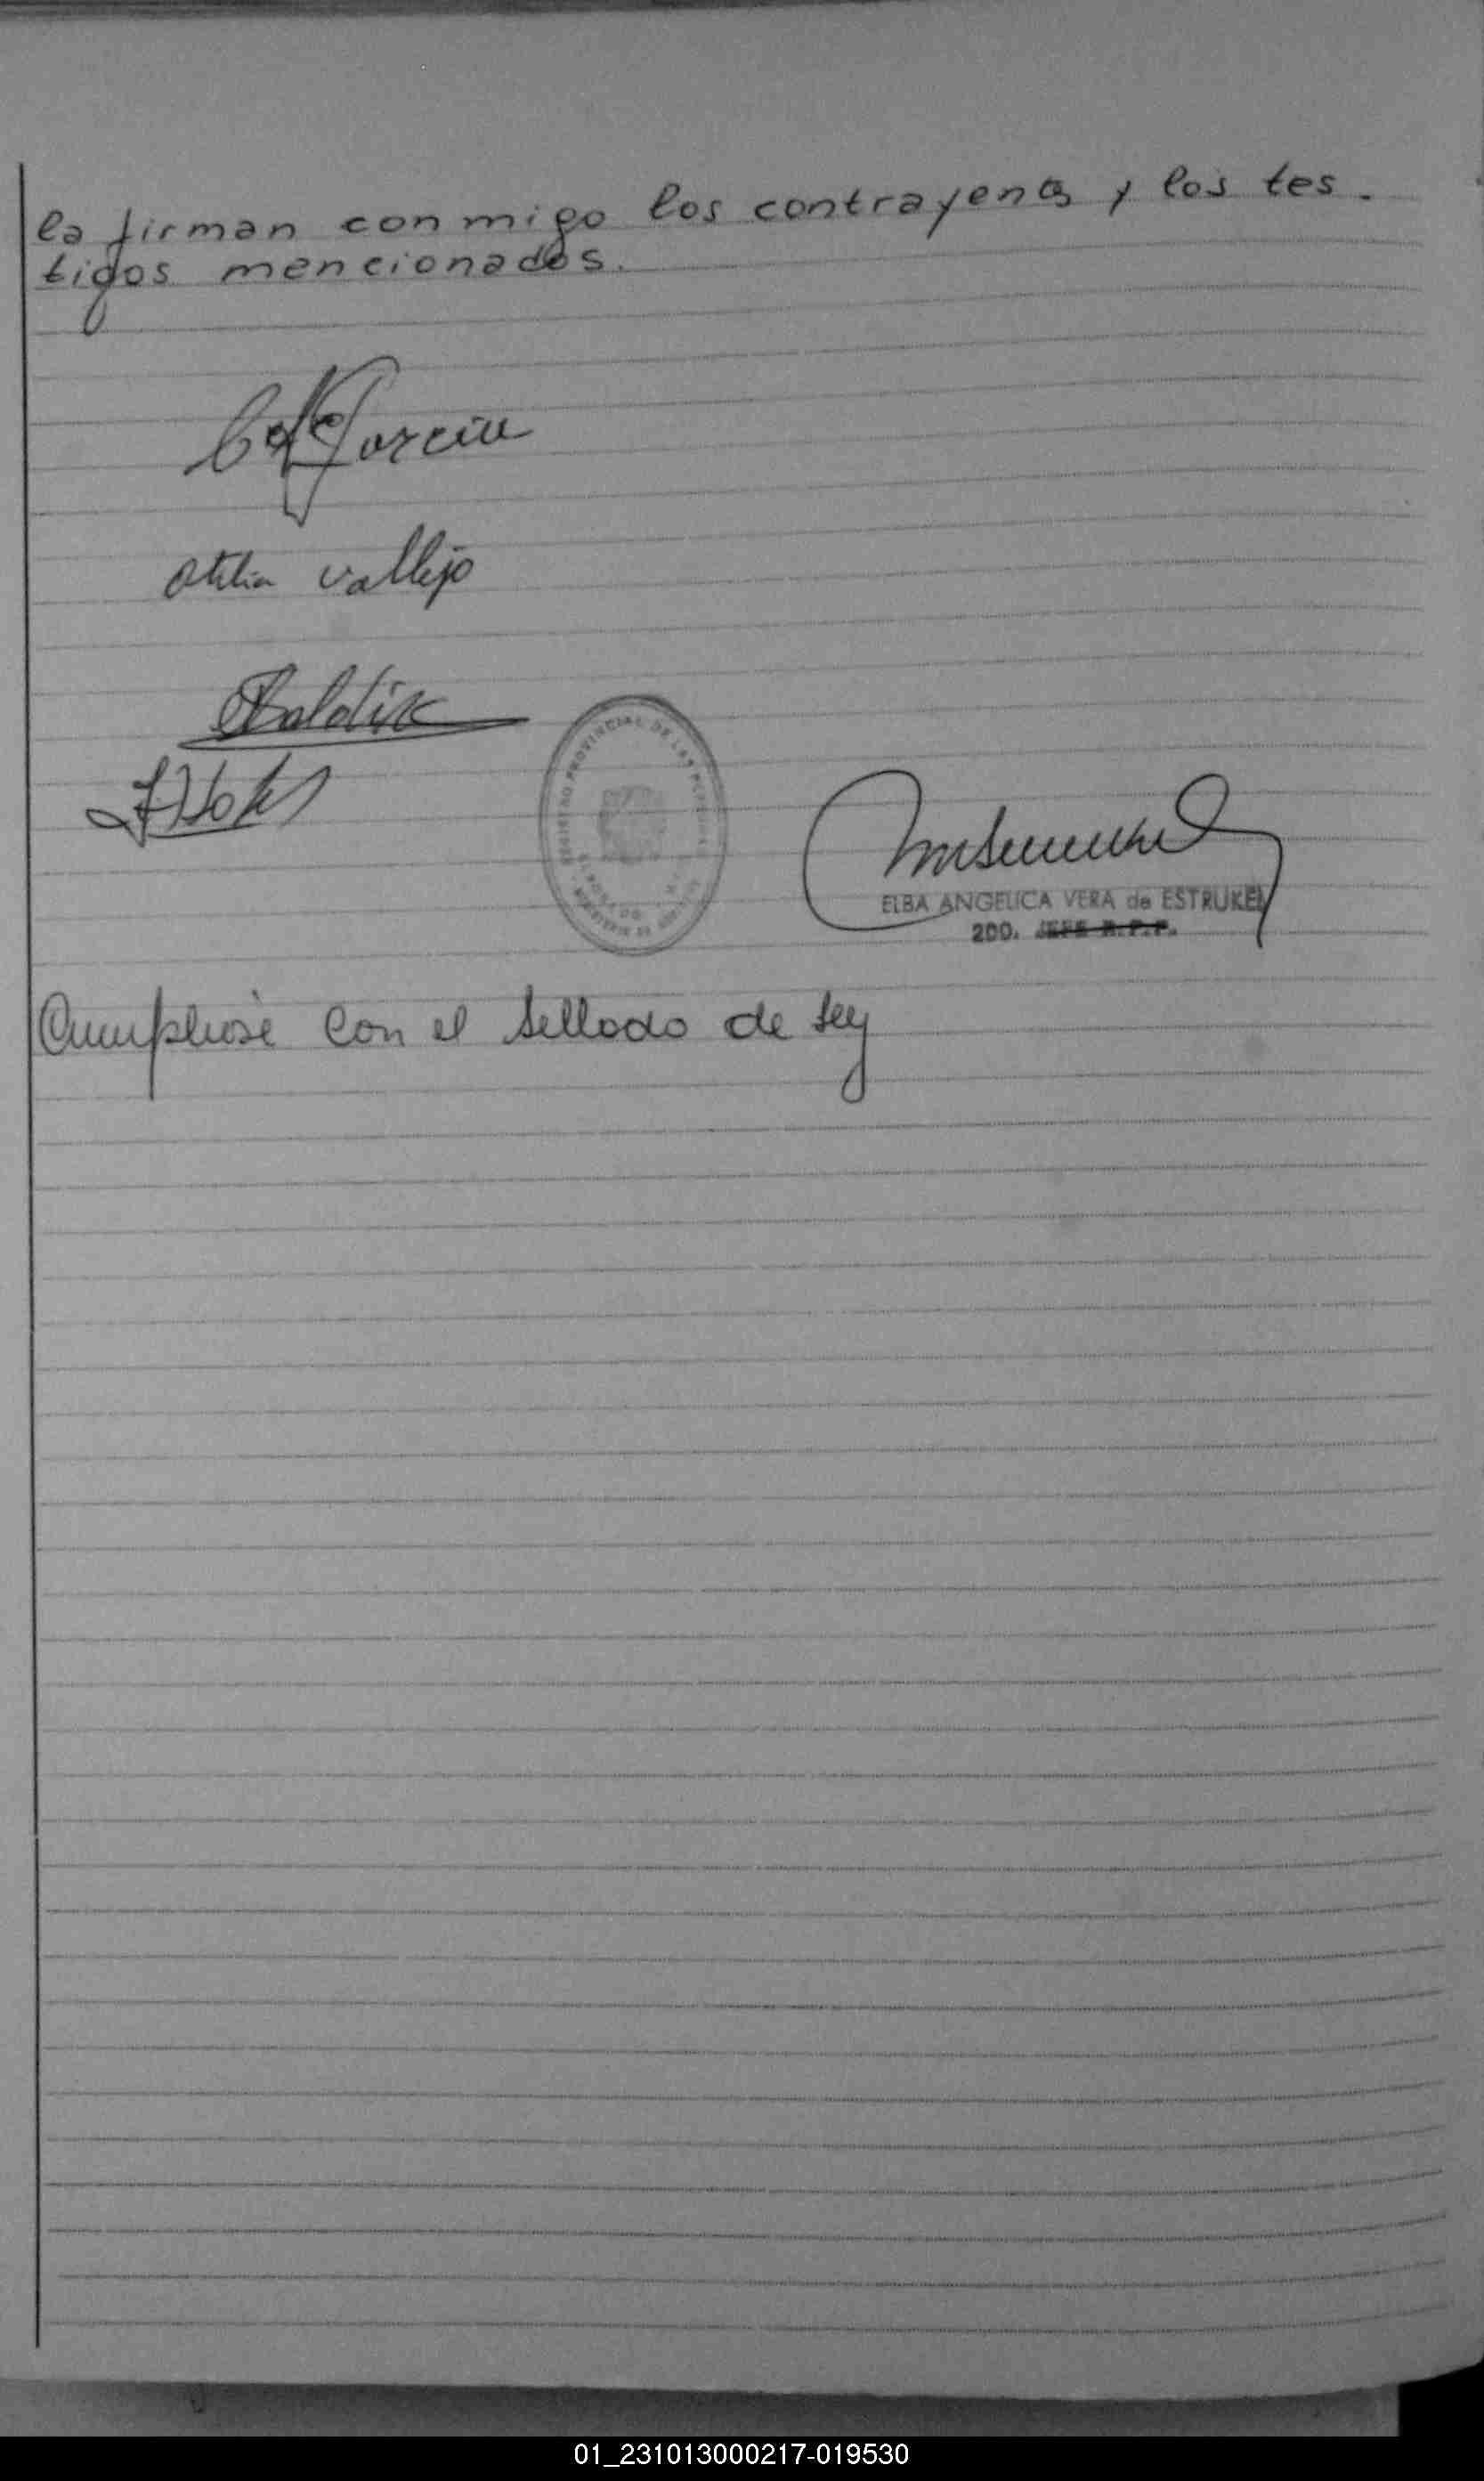 la firman conmigo los contrayentes y los tes-
tigos mencionados.
Garcia
Otilia Vallejo
REGISTRO PROVINCIAL DE LAS PERSONAS
ELBA ANGELICA VERA de ESTRUKEL
2DO. JEFE R.P.P.
Cumpliose con el sellado de ley
01_231013000217-019530